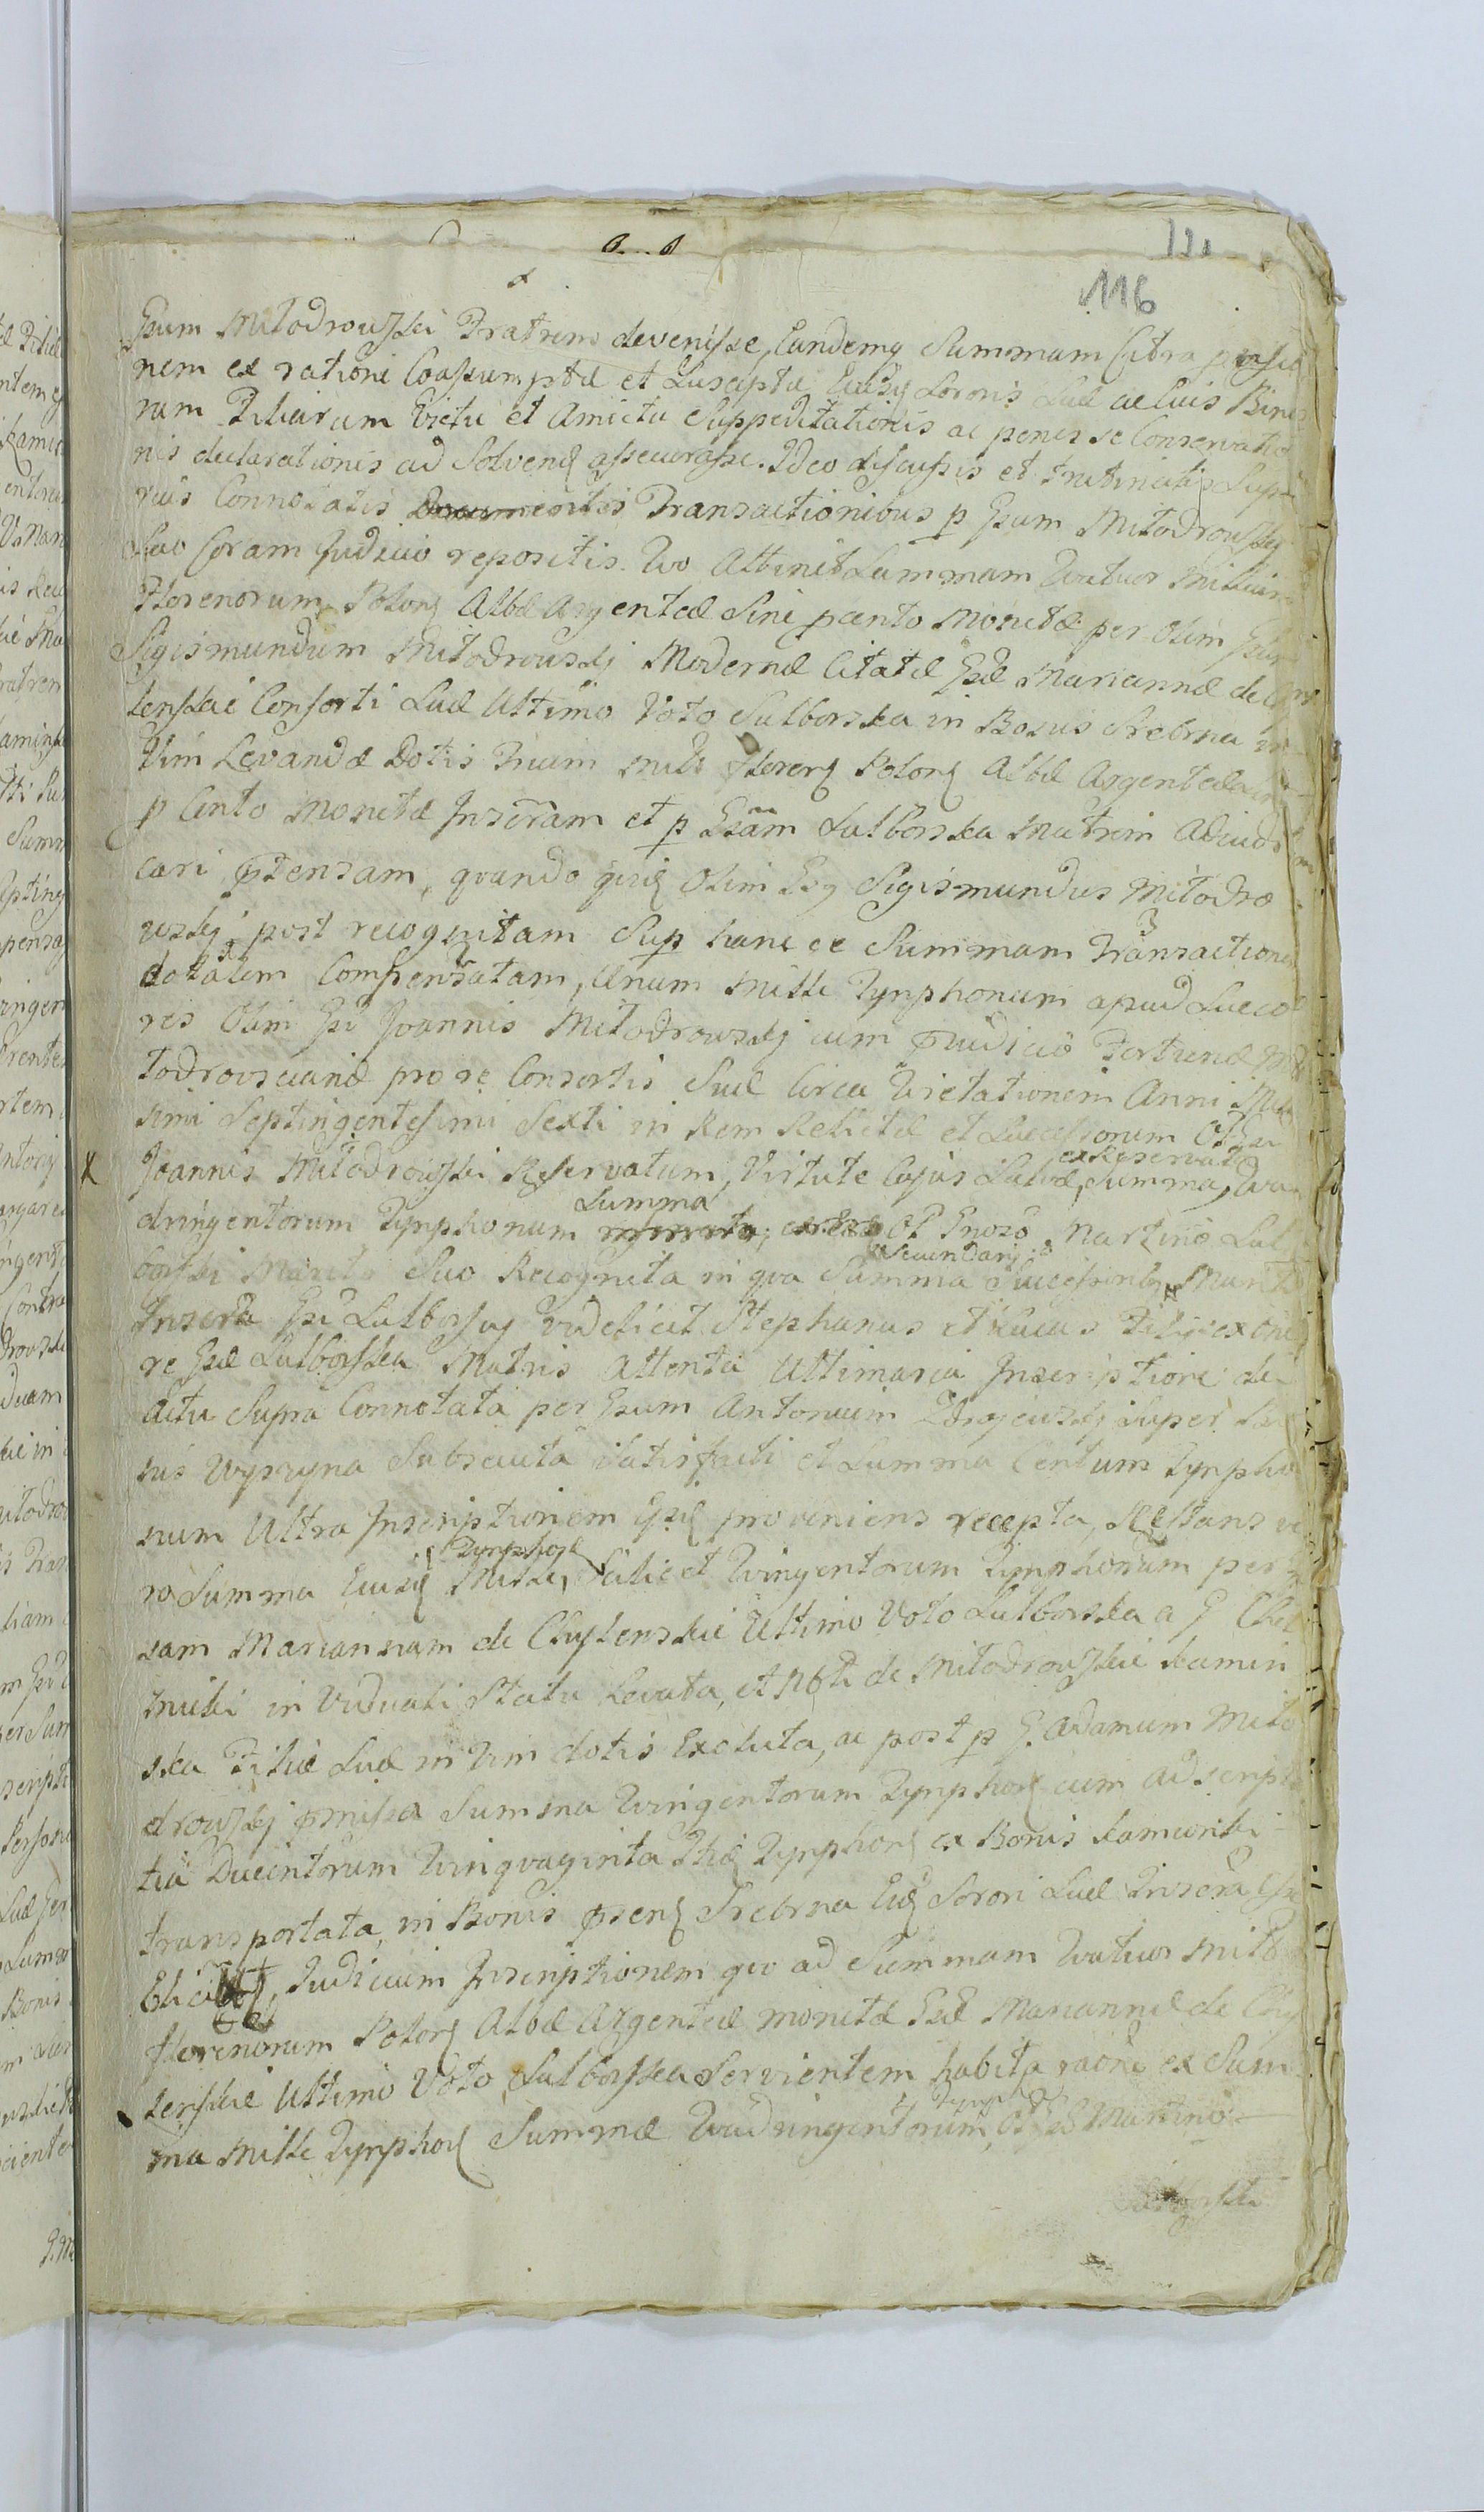 116
Gsum Miłodrowski Fratrem devenisse, Eandemq Summam Citra pensio
nem ex ratione Coassumptæ et Susceptæ Eiusq Sororis Suæ ac Suis Bina
rum Filiarum Victu et Amictu Suppeditationis ac penes se Conservatio
nis declarationis ad Solvend assecurasse. Ideo discussis et trutinatis Supe
rius Connotatis Documentis Transactionibus p Gsum Miłodrowskj
Suo Coram Judicio repositis. Qvo Attinet Summam Qvatuor Millium
Florenorum Polon Albæ Argenteæ Sine p cento Monetæ per olim Gsum
Sigismundum Miłodrowskj Modernæ Citatæ Gsæ Mariannæ de Chy
lenskie Consorti Suæ Ultimo Voto Sulborska in Bonis Srebrna in
Vim Levandæ Dotis Trium Mille floren Polon Albæ Argenteæ
p Cento Monetæ Inscram et p Gsam Sulborska Matrem Adiudi
cari ptensam, qvando qvid Olim Gsq Sigismundus Miłodro
wskj post recognitam Sup hanc ce Summam Transactionem
dotalem Compensatam, Unum Mille Tynphonum apud Succo
res Olim Gsi Joannis Miłodrowskj cum pjudicio Fortunæ Mi
łodrovscianæ pro re Consortis Suæ Circa Vietationem Anni Mille
simi Septingentesimi Sexti in Rem Relictæ et Successorum Ol Gsi
Joannis Miłodrowski Reservatum, Virtute Cujus Salvæ, ex Reservata Summa, Qva
dringentorum Tynphonum Summa Ol Gnoso Martino Sul
borski Marito Suo Recognita in qva Summa Successoribq Secundarij Mariti
Inscra Gsi Sulborscy videlicet Stephanus et Lucas Filij ex one
re Gsæ Sulborska Matris Attenta Ultimaria Inscriptione de
Actu Supra Connotata per Gsum Antonium Zdrojewskj Super Bo
nis Wyszyna Subsecuta Satisfacti et Summa Centum Tynpho
num Ultra Inscriptionem Gsis proveniens recepta, Restans ve
ro Summa Eiusd Mille Tynphon, Scilicet Qvingentorum Tynphonum per G
sam Mariannam de Chylenskie Ultimo Voto Sulborska a G Chel
micki in Viduali Statu Levata, et Nbli de Miłodrowskie Kamien
ska Filiæ Suæ in Vim dotis Exoluta, ac post p G. Adamum Miło
drowskj pmissa Summa Qvingentorum Tynphon cum adscripti
tia Ducentorum Qvinqvaginta Thid Tynphon ex Bonis Kamionki
transportata, in Bonis psend Srebrna Eid Sorori Suæ Inscra Esse
Elicitet, Judicium Inscriptionem qvo ad Summam Qvatuor Mille
florenorum Polon Albæ Argenteæ monetæ Gsæ Mariannæ de Chy
lenskie Ultimo Voto Sulborska Servientem habita raone ex Sum
ma Mille Tynphon Summæ Qvadringentorum Tynph Ol Gso Martino
Sulborski